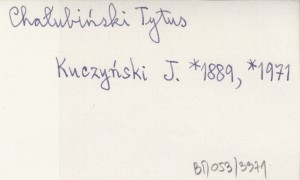 Chałubiński Tytus
Kuczyński J. *1889, *1971
BN/053/3371